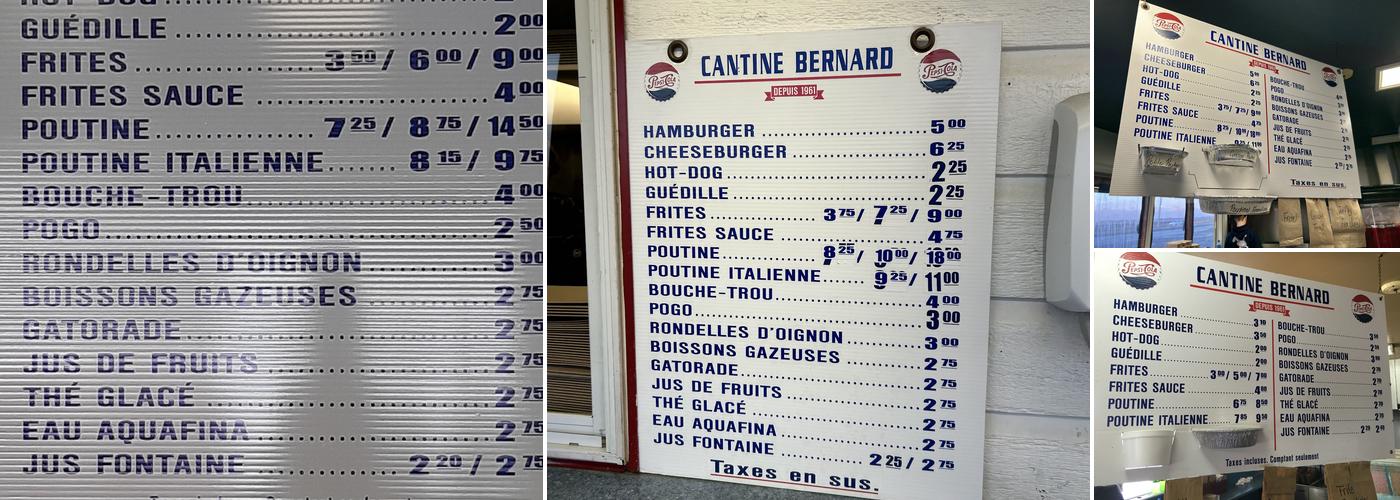 GUÉDILLE 2 00
FRITES 3 50 / 6 00 / 9 00
FRITES SAUCE 4 00
POUTINE 7 25 / 8 75 / 14 50
POUTINE ITALIENNE 8 15 / 9 75
BOUCHE-TROU 4 00
POGO 2 50
RONDELLES D'OIGNON 3 00
BOISSONS GAZEUSES 2 75
GATORADE 2 75
JUS DE FRUITS 2 75
THÉ GLACÉ 2 75
EAU AQUAFINA 2 75
JUS FONTAINE 2 20 / 2 75
CANTINE BERNARD
PEPSI-COLA
PEPSI-COLA
DEPUIS 1961
HAMBURGER 5 00
CHEESEBURGER 6 25
HOT-DOG 2 25
GUÉDILLE 2 25
FRITES 3 75 / 7 25 / 9 00
FRITES SAUCE 4 75
POUTINE 8 25 / 10 00 / 18 00
POUTINE ITALIENNE 9 25 / 11 00
BOUCHE-TROU 4 00
POGO 3 00
RONDELLES D'OIGNON 3 00
BOISSONS GAZEUSES 2 75
GATORADE 2 75
JUS DE FRUITS 2 75
THÉ GLACÉ 2 75
EAU AQUAFINA 2 75
JUS FONTAINE 2 25 / 2 75
Taxes en sus.
CANTINE BERNARD
HAMBURGER 5 00
CHEESEBURGER 6 25
HOT-DOG 2 25
GUÉDILLE 2 25
FRITES 3 75 / 7 25 / 9 00
FRITES SAUCE 4 75
POUTINE 8 25 / 10 00 / 18 00
POUTINE ITALIENNE
BOUCHE-TROU
POGO
RONDELLES D'OIGNON
BOISSONS GAZEUSES
GATORADE
JUS DE FRUITS
THÉ GLACÉ
EAU AQUAFINA
JUS FONTAINE
Taxes en sus.
PEPSI-COLA
CANTINE BERNARD
DEPUIS 1961
HAMBURGER
CHEESEBURGER 3 50
HOT-DOG 2 00
GUÉDILLE 2 00
FRITES 3 00 / 5 00 / 7 00
FRITES SAUCE
POUTINE 6 75 8 50
POUTINE ITALIENNE 7 85 9 50
BOUCHE-TROU
POGO
RONDELLES D'OIGNON
BOISSONS GAZEUSES
GATORADE
JUS DE FRUITS
THÉ GLACÉ
EAU AQUAFINA
JUS FONTAINE
Taxes incluses. Comptant seulement